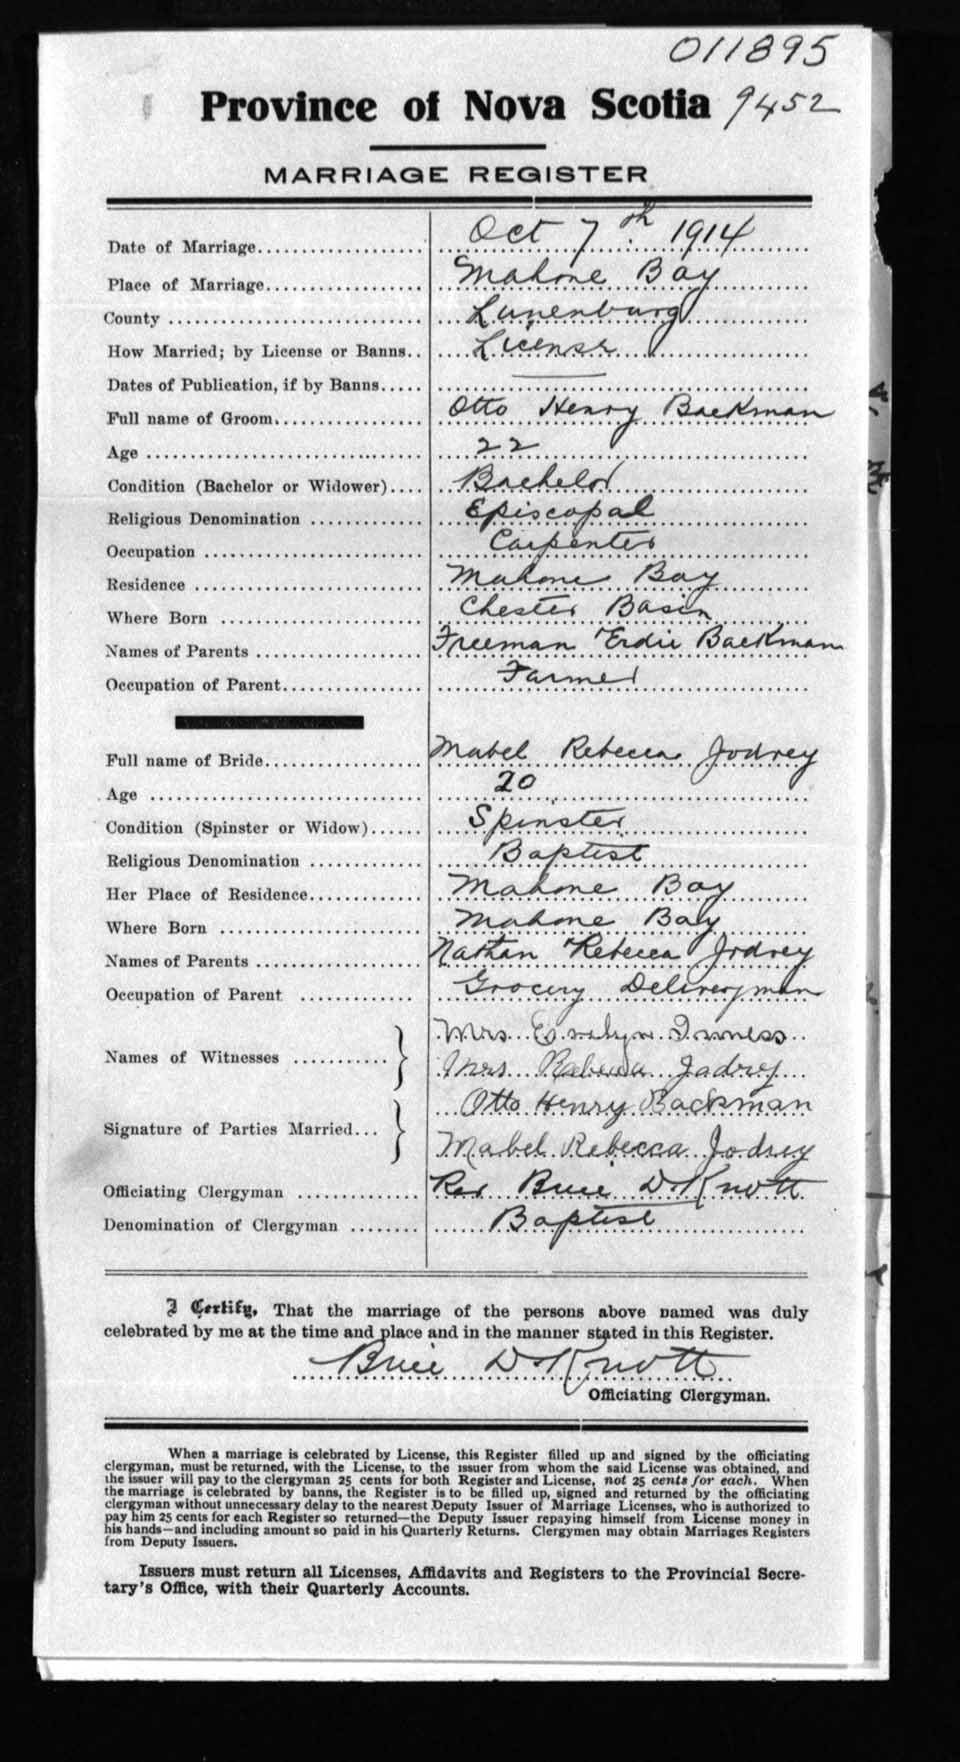 011895
Province of Nova Scotia 9452
MARRIAGE REGISTER
Date of Marriage.................... Oct 7th 1914
Place of Marriage................... Mahone Bay
County ............................. Lunenburg
How Married; by License or Banns.. License
Dates of Publication, if by Banns.....
Full name of Groom................. Otto Henry Backman
Age ............................... 22
Condition (Bachelor or Widower).... Bachelor
Religious Denomination ............. Episcopal
Occupation ......................... Carpenter
Residence .......................... Mahone Bay
Where Born ........................ Chester Basin
Names of Parents ................... Freeman Erdie Backman
Occupation of Parent................ Farmer
Full name of Bride.................. Mabel Rebecca Jodrey
Age ............................... 20
Condition (Spinster or Widow)...... Spinster
Religious Denomination ............. Baptist
Her Place of Residence............. Mahone Bay
Where Born ........................ Mahone Bay
Names of Parents ................... Nathan Rebecca Jodrey
Occupation of Parent ............. Grocery Deliveryman
Mrs. Evelyn Inness
Names of Witnesses ...........
Mrs Rebecca Jadrey
Otto Henry Backman
Signature of Parties Married...
Mabel Rebecca Jodrey
Officiating Clergyman .............. Rev D. Knott
Denomination of Clergyman ........ Baptist
I Certify, That the marriage of the persons above named was duly
celebrated by me at the time and place and in the manner stated in this Register.
D. Knott
Officiating Clergyman.
When a marriage is celebrated by License, this Register filled up and signed by the officiating
clergyman, must be returned, with the License, to the issuer from whom the said License was obtained, and
the issuer will pay to the clergyman 25 cents for both Register and License, not 25 cents for each. When
the marriage is celebrated by banns, the Register is to be filled up, signed and returned by the officiating
clergyman without unnecessary delay to the nearest Deputy Issuer of Marriage Licenses, who is authorized to
pay him 25 cents for each Register so returned—the Deputy Issuer repaying himself from License money in
his hands—and including amount so paid in his Quarterly Returns. Clergymen may obtain Marriages Registers
from Deputy Issuers.
Issuers must return all Licenses, Affidavits and Registers to the Provincial Secre-
tary's Office, with their Quarterly Accounts.